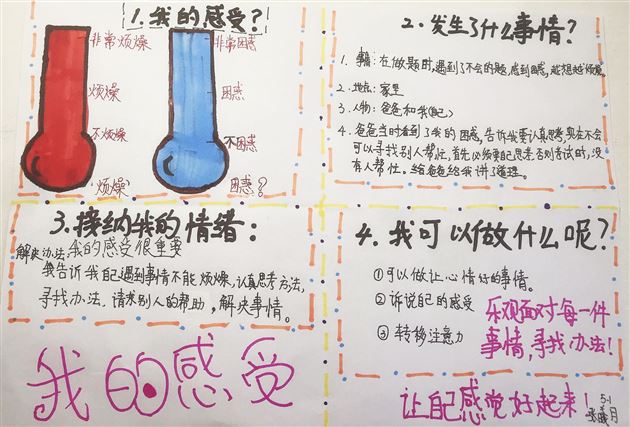 1.我的感受?
非常烦燥
烦燥
不烦燥
“烦燥”
非常困惑
困惑
不困惑
困惑?
2.发生了什么事情?
1. 事情:在做题时,遇到了不会的题,感到困惑,越想越烦燥
2. 地点:家里
3. 人物:爸爸和我(自己)
4. 爸爸当时看到了我的困惑,告诉我要认真思考,实在不会
可以寻找别人帮忙,首先必须要自己思考否则考试时,没
有人帮忙。爸爸给我讲了道理。
3.接纳我的情绪:
解决办法:我的感受很重要
我告诉我自己遇到事情不能烦燥,认真思考方法,
寻找办法.请求别人的帮助,解决事情。
我的感受
4.我可以做什么呢?
①可以做让心情好的事情。
②诉说自己的感受
③转移注意力
乐观面对每一件
事情,寻找办法!
让自己感觉好起来!
5-1